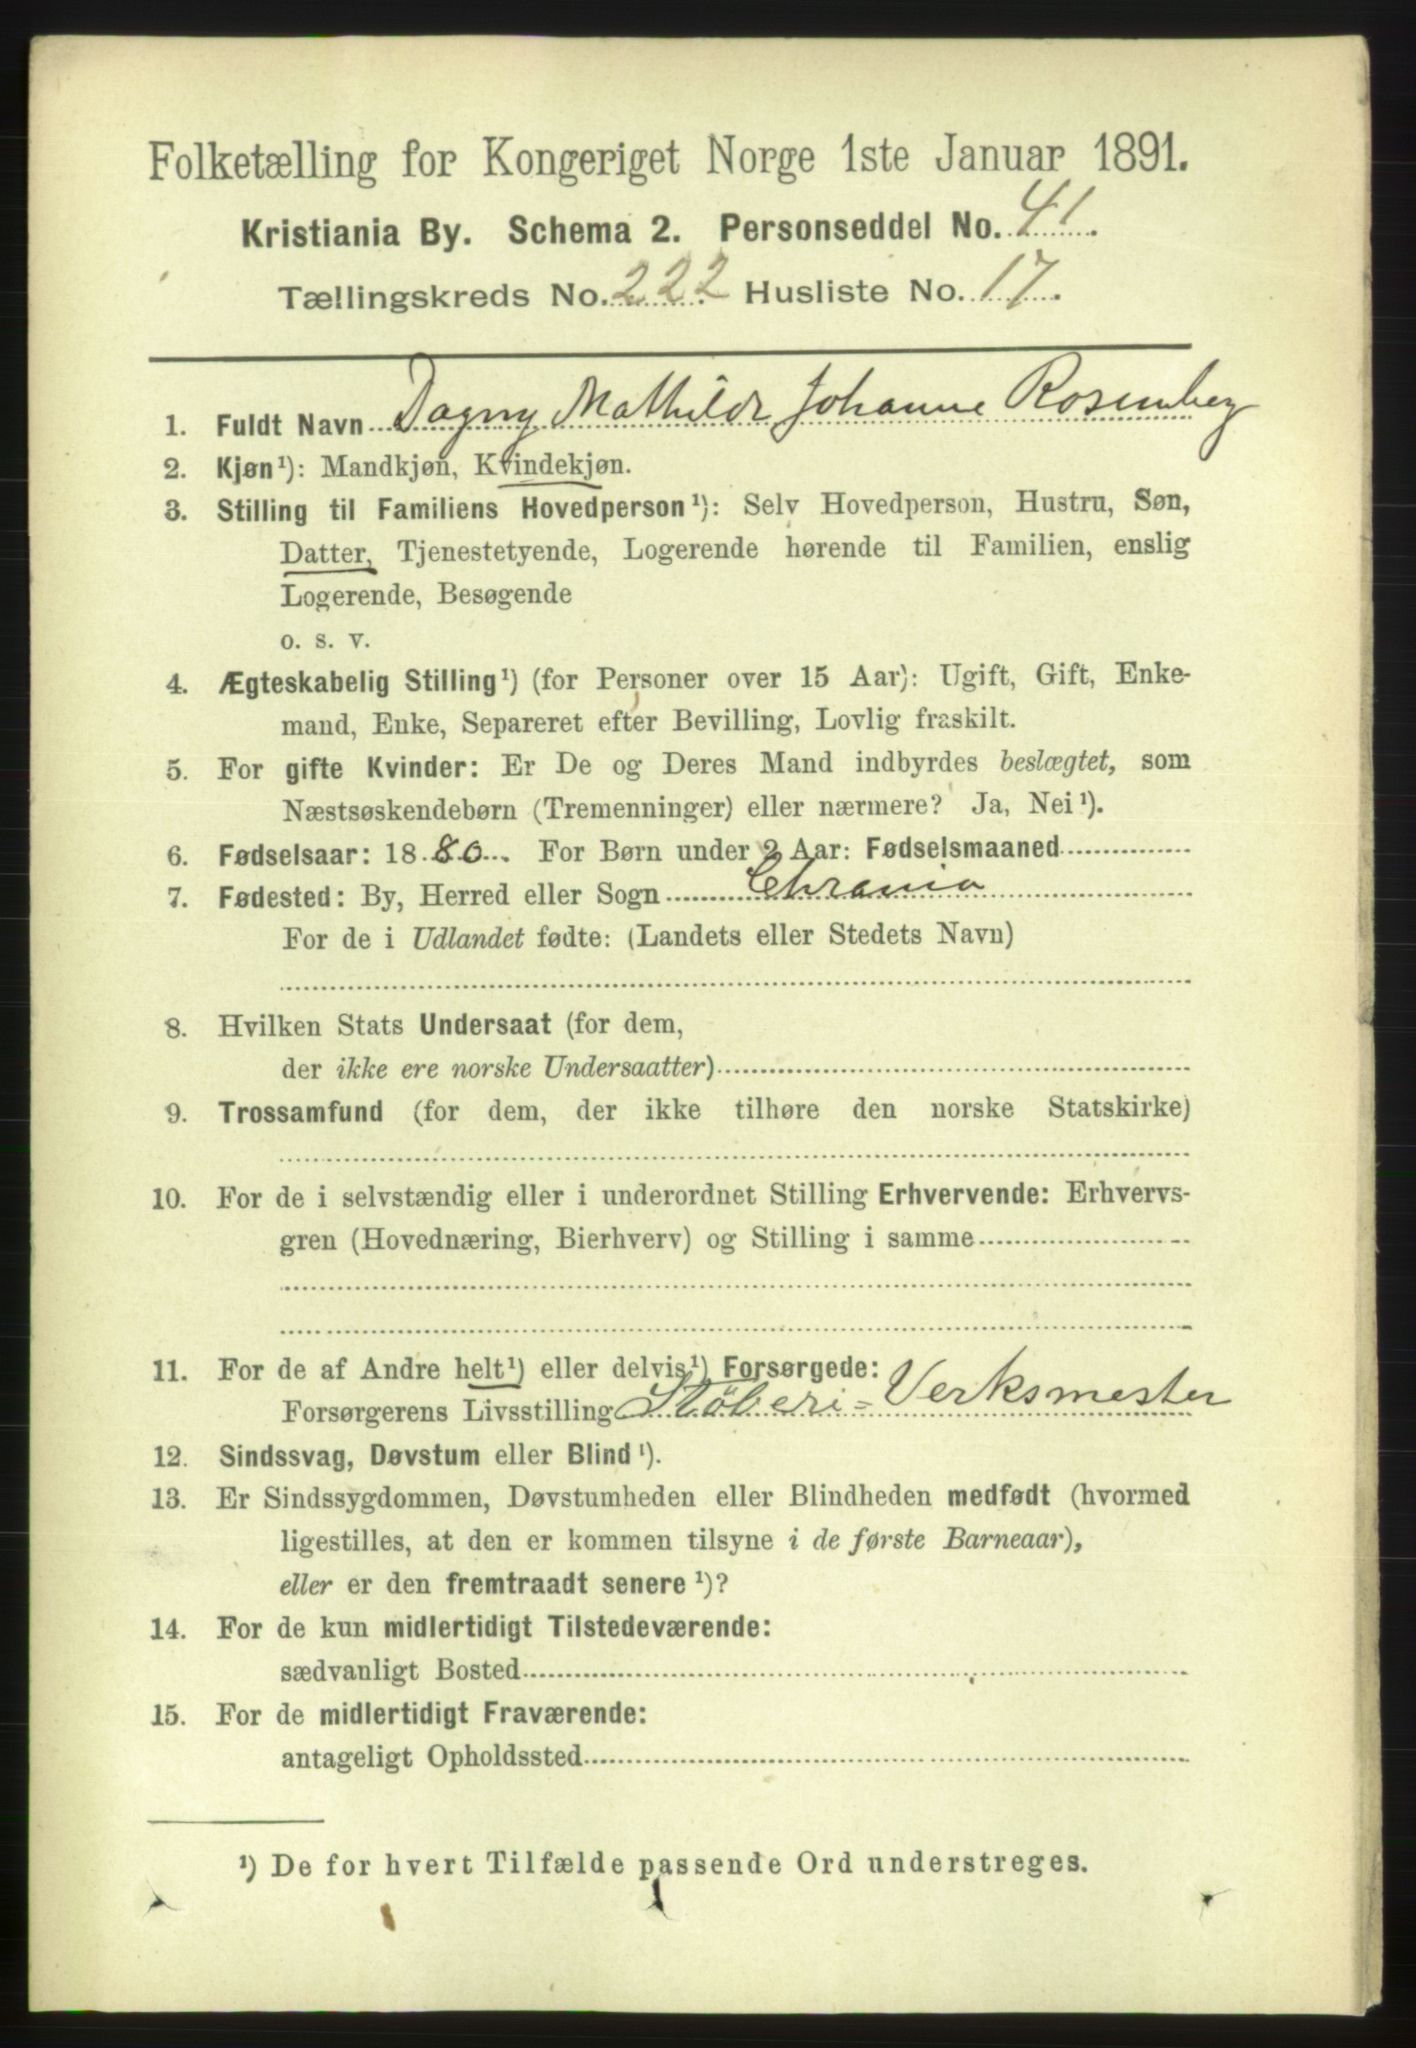 Folketælling for Kongeriget Norge 1ste Januar 1891.
Kristiania By. Schema 2. Personseddel No. 41.
Tællingskreds No. 222 Husliste No. 17.
1. Fuldt Navn Dagny Mathilde Johanne Rosenberg
2. Kjøn¹): Mandkjøn, Kvindekjøn.
3. Stilling til Familiens Hovedperson¹): Selv Hovedperson, Hustru, Søn,
Datter, Tjenestetyende, Logerende hørende til Familien, enslig
Logerende, Besøgende
o. s. v.
4. Ægteskabelig Stilling¹) (for Personer over 15 Aar): Ugift, Gift, Enke-
mand, Enke, Separeret efter Bevilling, Lovlig fraskilt.
5. For gifte Kvinder: Er De og Deres Mand indbyrdes beslægtet, som
Næstsøskendebørn (Tremenninger) eller nærmere? Ja, Nei¹).
6. Fødselsaar: 1880. For Børn under 2 Aar: Fødselsmaaned
7. Fødested: By, Herred eller Sogn Chrania
For de i Udlandet fødte: (Landets eller Stedets Navn)
8. Hvilken Stats Undersaat (for dem,
der ikke ere norske Undersaatter)
9. Trossamfund (for dem, der ikke tilhøre den norske Statskirke)
10. For de i selvstændig eller i underordnet Stilling Erhvervende: Erhvervs-
gren (Hovednæring, Bierhverv) og Stilling i samme
11. For de af Andre helt¹) eller delvis¹) Forsørgede:
Forsørgerens Livsstilling Støberi=Verksmester
12. Sindssvag, Døvstum eller Blind¹).
13. Er Sindssygdommen, Døvstumheden eller Blindheden medfødt (hvormed
ligestilles, at den er kommen tilsyne i de første Barneaar),
eller er den fremtraadt senere¹)?
14. For de kun midlertidigt Tilstedeværende:
sædvanligt Bosted
15. For de midlertidigt Fraværende:
antageligt Opholdssted
¹) De for hvert Tilfælde passende Ord understreges.